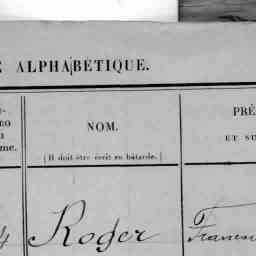 E ALPHABÉTIQUE.
NOM.
(Il doit être écrit en bâtarde.)
PRÉ
ET SU
me.
4 Roger Francs